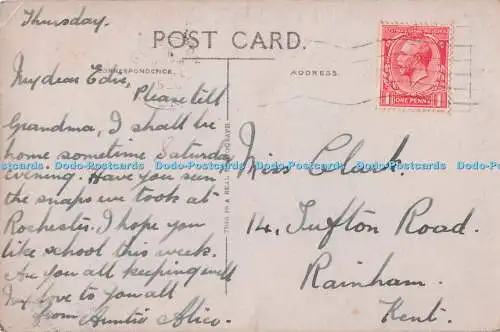 Thursday.
POST CARD.
CORRESPONDENCE.
ADDRESS.
ONE PENNY
My dear Edie,
Please tell
Grandma, I shall be
home sometime Saturday
evening. Have you seen
the snaps we took at
Rochester. I hope you
like school this week.
Are you all keeping well
My love to you all
from Auntie Alice.
THIS IS A REAL PHOTOGRAPH
Miss Clark.
14, Tufton Road.
Rainham.
Kent.
Dodo-Postcards Dodo-Postcards Dodo-Postcards Dodo-Postcards Dodo-Postcards